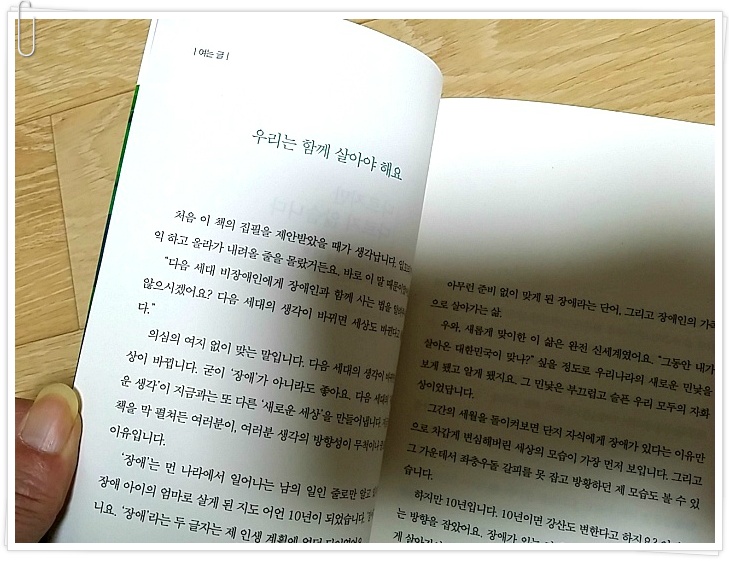 | 여는 글 |
우리는 함께 살아야 해요
처음 이 책의 집필을 제안받았을 때가 생각납니다.
억 하고 올라가 내려올 줄을 몰랐거든요. 바로 이 말
"다음 세대 비장애인에게 장애인과 함께 사는 법을
않으시겠어요? 다음 세대의 생각이 바뀌면 세상도
다."
의심의 여지 없이 맞는 말입니다. 다음 세대의 생각이
상이 바뀝니다. 굳이 '장애'가 아니라도 좋아요. 다음
운 생각'이 지금과는 또 다른 '새로운 세상'을 만들어냅니다.
책을 막 펼쳐든 여러분이, 여러분 생각의 방향성이
이유입니다.
'장애'는 먼 나라에서 일어나는 남의 일인 줄로만 알고
장애 아이의 엄마로 살게 된 지도 어언 10년이 되었습니다.
니요. '장애'라는 두 글자는 제 인생 계획에
아무런 준비 없이 맞게 된 장애라는 단어, 그리고 장애인의 가족
으로 살아가는 삶.
우와, 새롭게 맞이한 이 삶은 완전 신세계였어요. "그동안 내가
살아온 대한민국이 맞나?" 싶을 정도로 우리나라의 새로운 민낯을
보게 됐고 알게 됐지요. 그 민낯은 부끄럽고 슬픈 우리 모두의 자화
상이었답니다.
그간의 세월을 돌이켜보면 단지 자식에게 장애가 있다는 이유만
으로 차갑게 변심해버린 세상의 모습이 가장 먼저 보입니다. 그리고
그 가운데서 좌충우돌 갈피를 못 잡고 방황하던 제 모습도 볼 수 있
습니다.
하지만 10년입니다. 10년이면 강산도 변한다고 하지요?
는 방향을 잡았어요. 장애가 있는